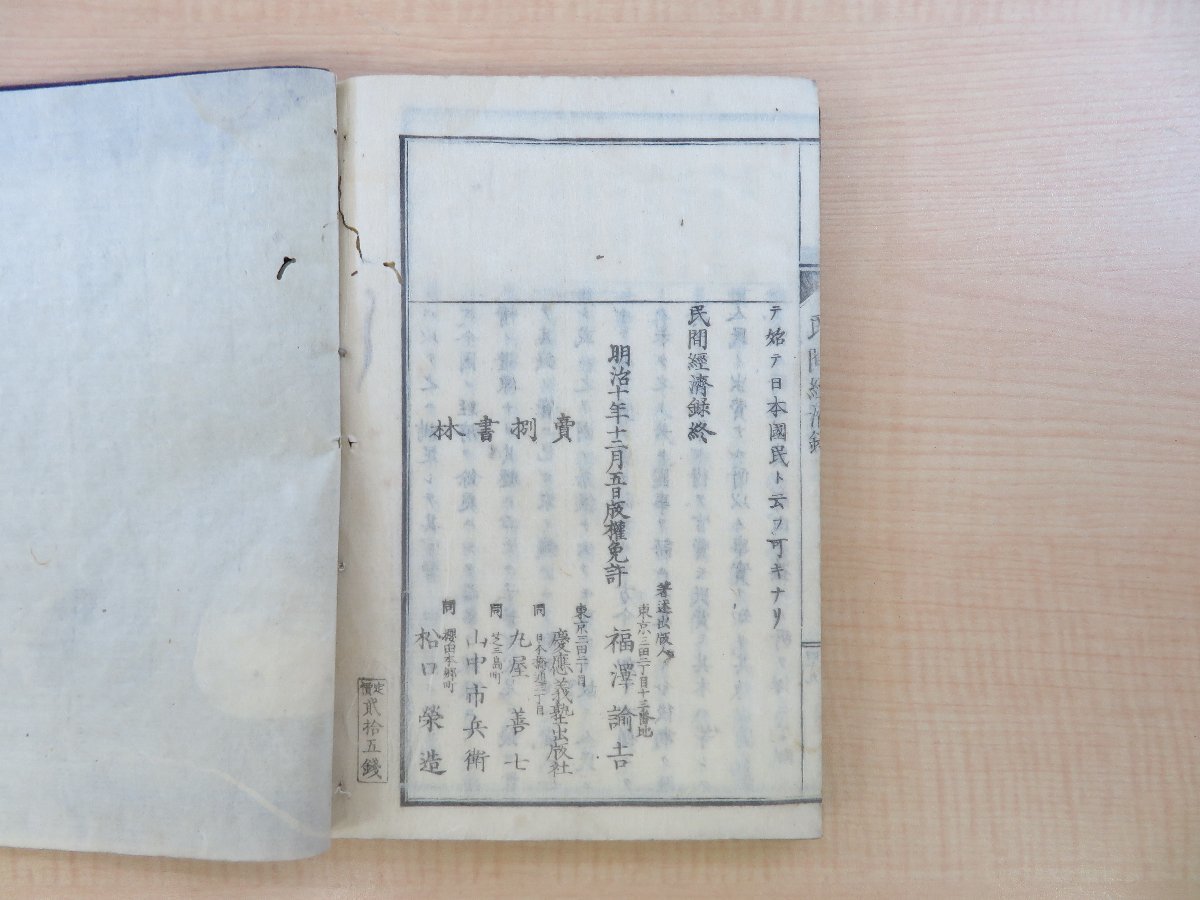 民間經濟録
テ始テ日本國民ト云フ可キナリ
民間經濟録終
明治十年十二月五日版權免許
著述出版人
東京三田二丁目十三番地
福澤諭吉
賣捌書林
東京三田二丁目
慶應義塾出版社
同 日本橋通三丁目
丸屋善七
同 芝三島町
山中市兵衛
同 櫻田本郷町
松口榮造
定價
貳拾五錢